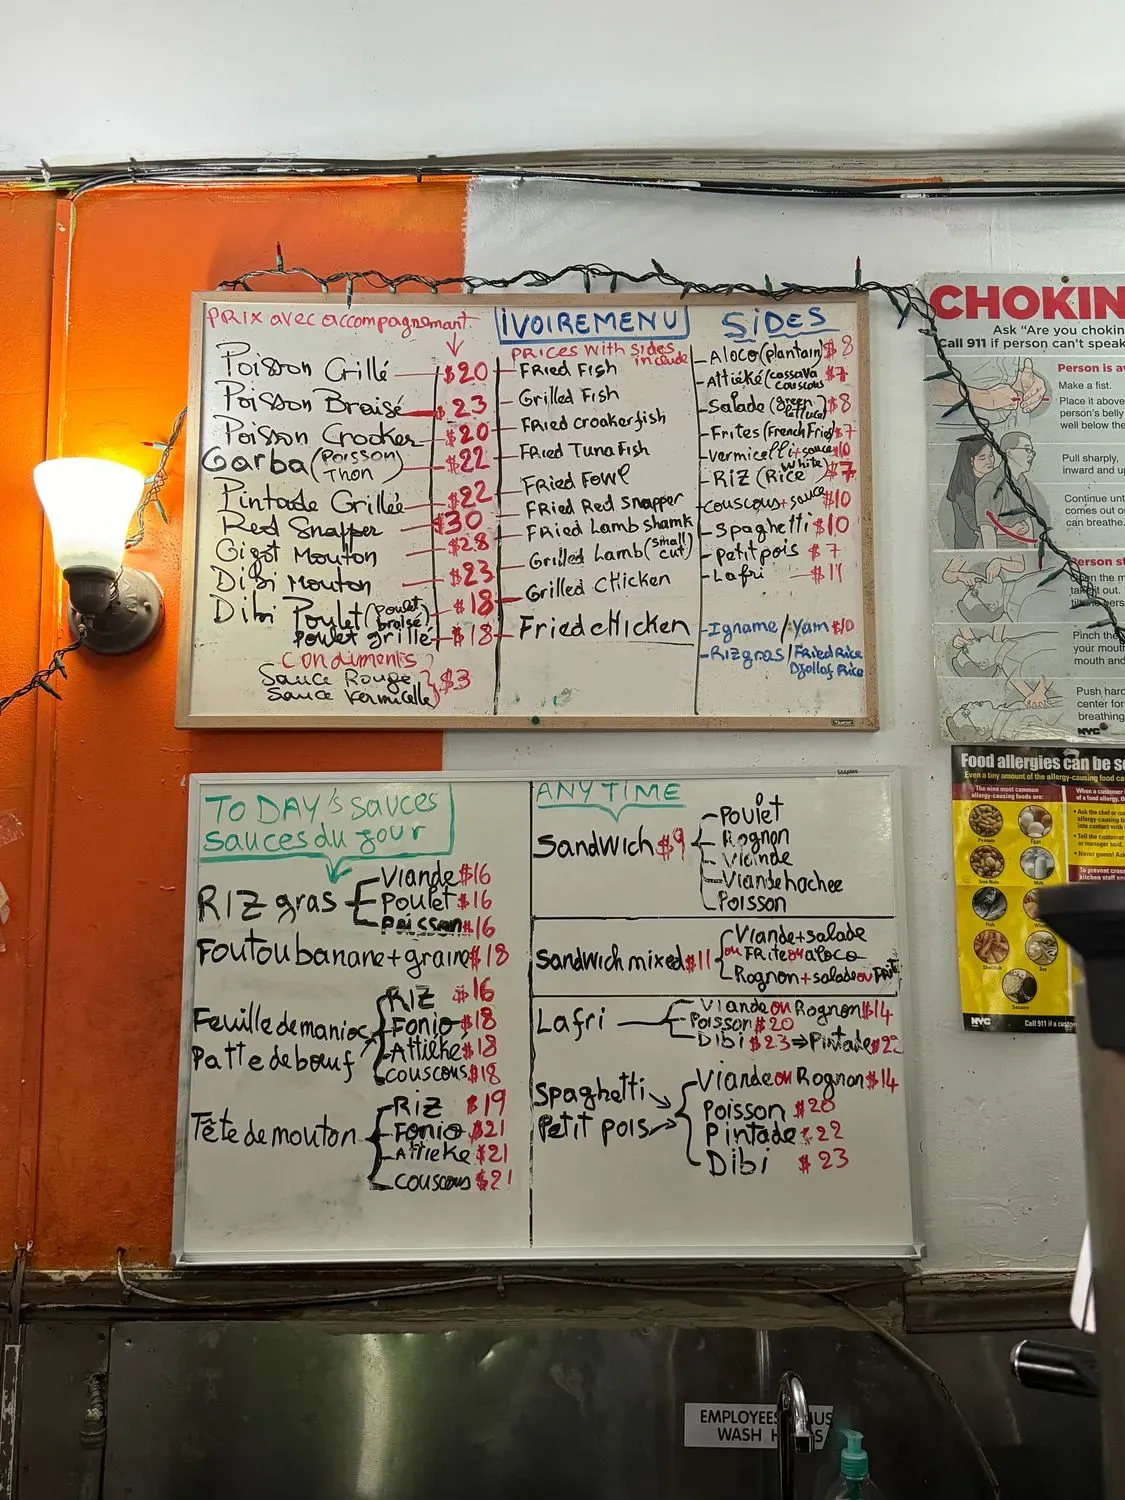 PRIX avec accompagnemant
Poisson Grillé $20
Poisson Braisé $23
Poisson Crooker $20
Garba (Poisson Thon) $22
Pintade Grillée $22
Red Snapper $30
Gigot Mouton $28
Dibi Mouton $23
Dibi Poulet (Poulet braisé) $18
Poulet grillé $18
Condiments
Sauce Rouge
Sauce Vermicelle
$3
IVOIREMENU
PRICES With Sides include
FRied Fish
Grilled Fish
FRied croakerfish
FRied TunaFish
FRied Fowl
FRied Red Snapper
FRied Lamb shamk
Grilled Lamb (small cut)
Grilled CHicken
Fried cHicken
SiDES
Aloco (plantain) $8
Attiéké (cassava couscous $7
Salade (green lettuce) $8
Frites (French Fries) $7
Vermicelli + sauce $10
RiZ (Rice White $7
couscous + sauce $10
Spaghetti $10
Petit pois $7
Lafri $11
Igname / Yam $10
RIZ gras / FRied Rice
Djollof Rice
TO DAY's sauces
sauces du jour
RIZ gras
Viande $16
Poulet $16
Poisson $16
Foutou banane + graine $18
Feuille de manioc
Patte de bœuf
RIZ $16
Fonio $18
Attieke $18
couscous $18
Tête de mouton
RIZ $19
Fonio $21
Attieke $21
couscous $21
ANY TIME
SandWich $9
Poulet
Rognon
Viande hachee
Poisson
Sandwich mixed $11
Viande + salade
ou FRite ou aloco
Rognon + salade ou Frite
Lafri
Viande ou Rognon $14
Poisson $20
DIbi $23 ⇒ Pintade $22
Spaghetti
Petit pois
Viande ou Rognon $14
Poisson $20
Pintade $22
Dibi $23
Staples
CHOKIN
Ask “Are you chokin
Call 911 if person can't speak
Person is aw
Make a fist.
Place it above
person's belly
well below the
Pull sharply,
inward and up
Continue unt
comes out o
can breathe.
Person st
Open the m
Pinch the
your mout
mouth and
Push hard
center for
breathing
NYC
Food allergies can be se
Even a tiny amount of the allergy-causing food ca
The nine most common
allergy-causing foods are:
Peanuts
Eggs
Tree Nuts
Milk
Fish
Shellfish
Soy
Sesame
NYC
Call 911 if a custom
EMPLOYEES MUS
WASH H